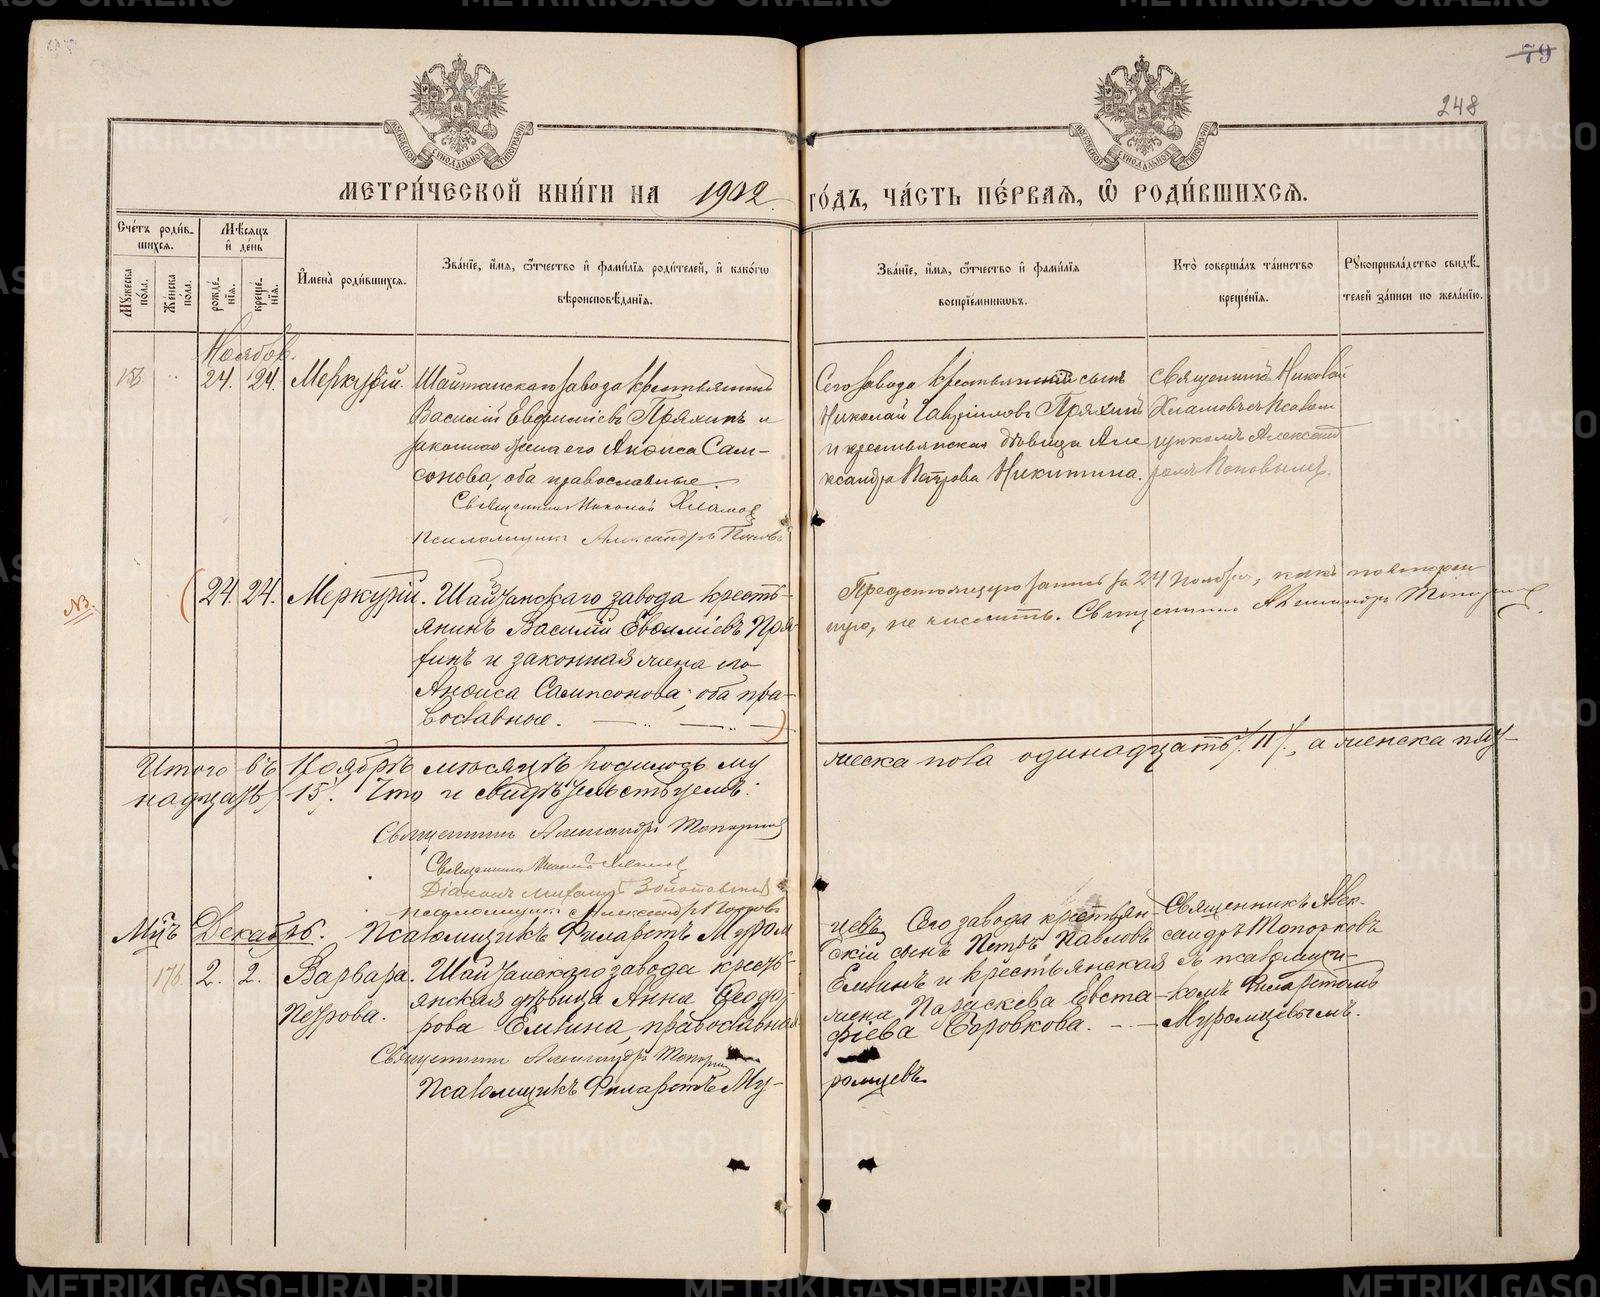 79
248
МОСКОВСКОЙ СѴНОДАЛЬНОЙ ТИПОГРАФІИ
МОСКОВСКОЙ СѴНОДАЛЬНОЙ ТИПОГРАФІИ
МЕТРИ́ЧЕСКОЙ КНИ́ГИ НА 1902 ГО́ДЪ, ЧА́СТЬ ПЕ́РВАѦ, Ѽ РОДИ́ВШИХСѦ.
Сче́тъ роди́в-
шихсѧ.
Мꙋ́жеска по́ла.
Же́нска по́ла.
Мѣ́сѧцъ и҆ де́нь
рожде́-
нїѧ.
креще́-
нїѧ.
И҆мена̀ роди́вшихсѧ.
Зва́нїе, и҆́мѧ, ѻ҆́тчество и҆ фами́лїѧ роди́телей, и҆ како́гѡ
вѣроисповѣ́данїѧ.
Зва́нїе, и҆́мѧ, ѻ҆́тчество и҆ фами́лїѧ
воспрїе́мникѡвъ.
Кто̀ соверша́лъ та́инство
креще́нїѧ.
Рꙋкоприкла́дство свидѣ́-
телей за́писи по жела́нїю.
Ноябр.
153. 24. 24. Меркурій. Шайтанскаго завода крестьянинъ
Василій Евѳиміевъ Пряхинъ и
законная жена его Анѳиса Сам-
сонова, оба православные.
Священникъ Николай Хламов
Псаломщикъ Александръ Поповъ
Сего завода крестьянскій сынъ
Николай Гавріиловъ Пряхинъ
и крестьянская дѣвица Але
ксандра Петрова Никитина.
Священникъ Николай
Хламовъ съ Псалом
щикомъ Александ
ромъ Поповымъ.
NB.
24. 24. Меркурій. Шайтанскаго завода кресть-
янинъ Василій Евѳиміевъ Пря-
хинъ и законная жена его
Анѳиса Сампсонова; оба пра-
вославные.
Предстоящую запись за 24 Ноября, какъ повторен
ную, не числить. Священникъ Александръ Топорков
Итого въ Ноябрѣ мѣсяцѣ родилось му
жеска пола одинадцать /.11/., а женска пят-
надцать /.15/. Что и свидѣтельствуемъ:
Священникъ Александръ Топорков
Священникъ Николай Хламов
Діаконъ Михаилъ
Псаломщикъ Александръ Поповъ
Псаломщикъ Филаретъ Муром
цевъ
Мц҃ъ Декабрь.
176. 2. 2. Варвара Петрова.
Шайтанскаго завода кресть-
янская дѣвица Анна Ѳеодо-
рова Емлина, православная
Священникъ Александръ Топорк
Псаломщикъ Филаретъ Му-
ромцевъ
Сего завода крестьян-
скій сынъ Петръ Павловъ
Емлинъ и крестьянская
жена Параскева Евста-
фіева Боровкова.
Священникъ Алек-
сандръ Топорковъ
съ псаломщи-
комъ Филаретомъ
Муромцевымъ.
METRIKI.GASO-URAL.RU